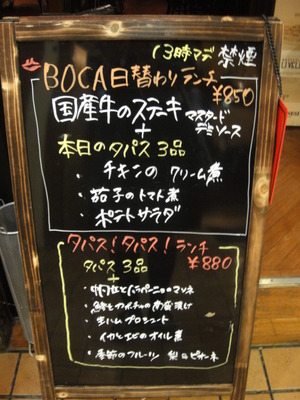 13時マデ 禁煙
BOCA日替わりランチ
¥850
国産牛のステーキ
マスタード
ソース
+
本日のタパス 3品
・チキンのクリーム煮
・茄子のトマト煮
・ポテトサラダ
タパス!タパス!ランチ
タパス 3品 ¥880
+
のマリネ
の南蛮漬け
・生ハム プロシュート
・イカとエビのオイル煮
・季節のフルーツ 梨&ピオーネ